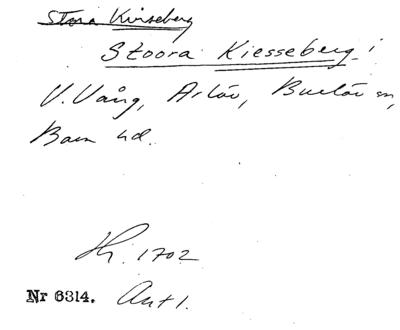 Stora Kinseberg
Stoora Kiesseberg i
V. Vång, Arlöv, Burlöv sn,
Bara hd.
Hr. 1702
Nr 6314. Ant 1.